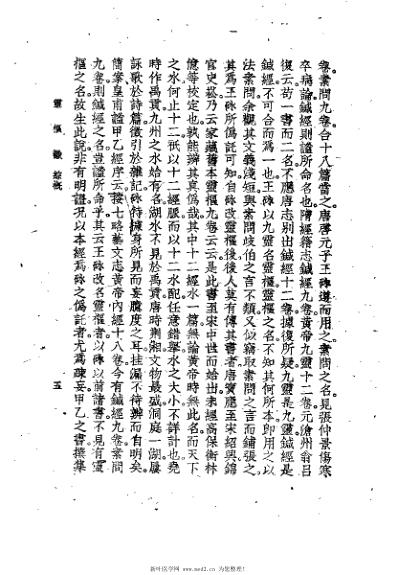 卷素問九卷合十八篇當之唐啓元子王砅遵而用之素問之名見張仲景傷寒
卒病論鍼經則謐所命名也隋經籍志鍼經九卷黃帝九靈十二卷元滄州翁呂
復云苟一書而二名不應唐志別出鍼經十二卷據復所疑九靈是九靈鍼經是
鍼經不可合而爲一也王砅以九靈名靈樞靈樞之名不知其何所本卽用之以
法素問余觀其文義淺短與素問岐伯之言不類又似竊取素問之言而鋪張之
其爲王砅所僞託可知自砅改靈樞後後人莫有傳其書者唐寶應至宋紹興錦
官史崧乃云家藏舊本靈樞九卷云云是此書至宋中世而始出未經高保衡林
億等校定也孰能辨其眞僞哉其中十二經水一篇無論黃帝時無此名而天下
之水何止十二祇以十二經脈而以十二水配任意錯舉水之大小不詳計也堯
時作禹貢九州之水始有名湖水不見於禹貢唐時荆湘文物最盛洞庭一湖屢
詠歌於詩篇徵引於雜記砅特據身所見而妄臆度之耳挂漏不待辨而自明矣
簡案皇甫謐甲乙經序云按七略藝文志黃帝內經十八卷今有鍼經九卷素問
九卷則鍼經之名豈謐所命乎其云王砅改名靈樞者以砅以前諸書不見有靈
樞之名故生此說非有明證況以本經爲砅之僞託者尤爲疎妄甲乙之書撰集
靈樞識 綜概 五
新叶医学网 www.med2.cn 为您整理!